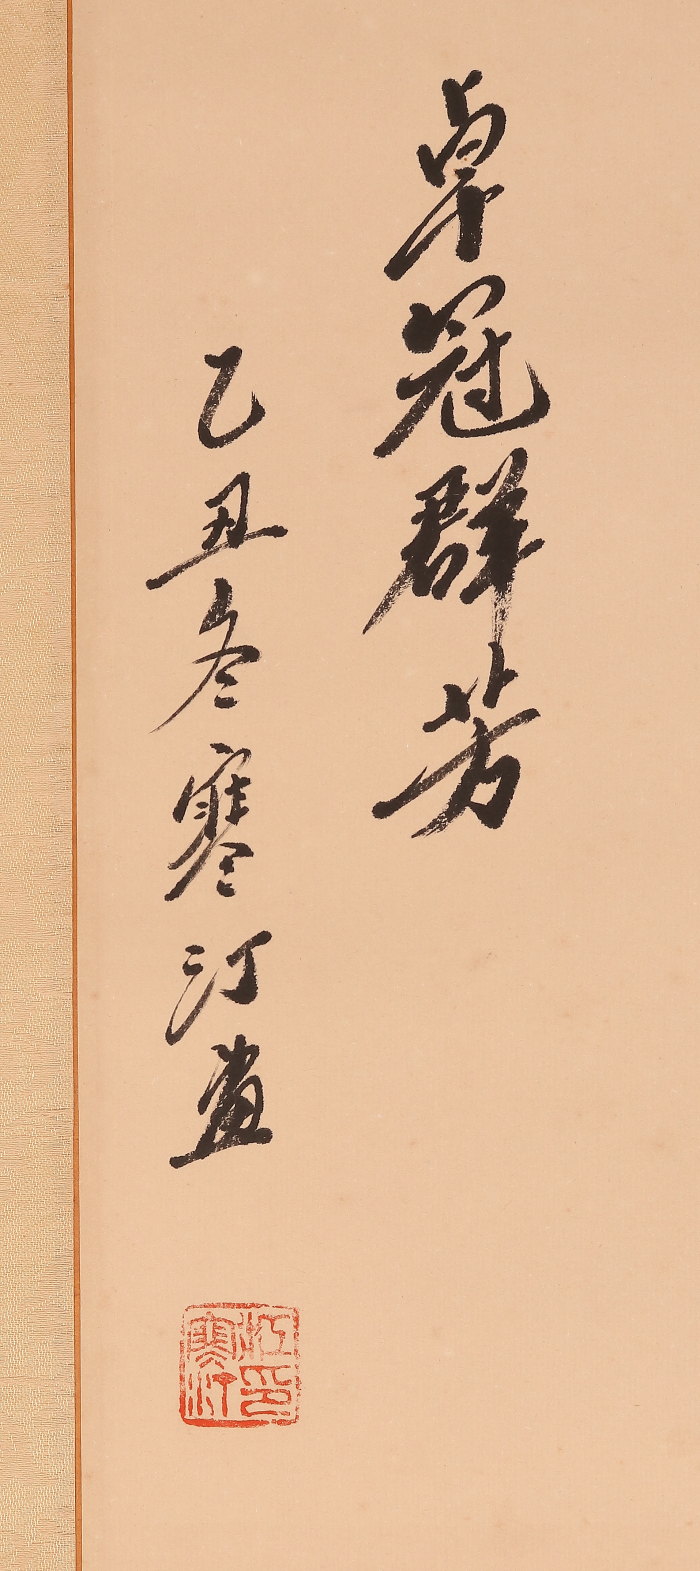 卓冠群芳
乙丑冬寒汀畫
江印
寒汀